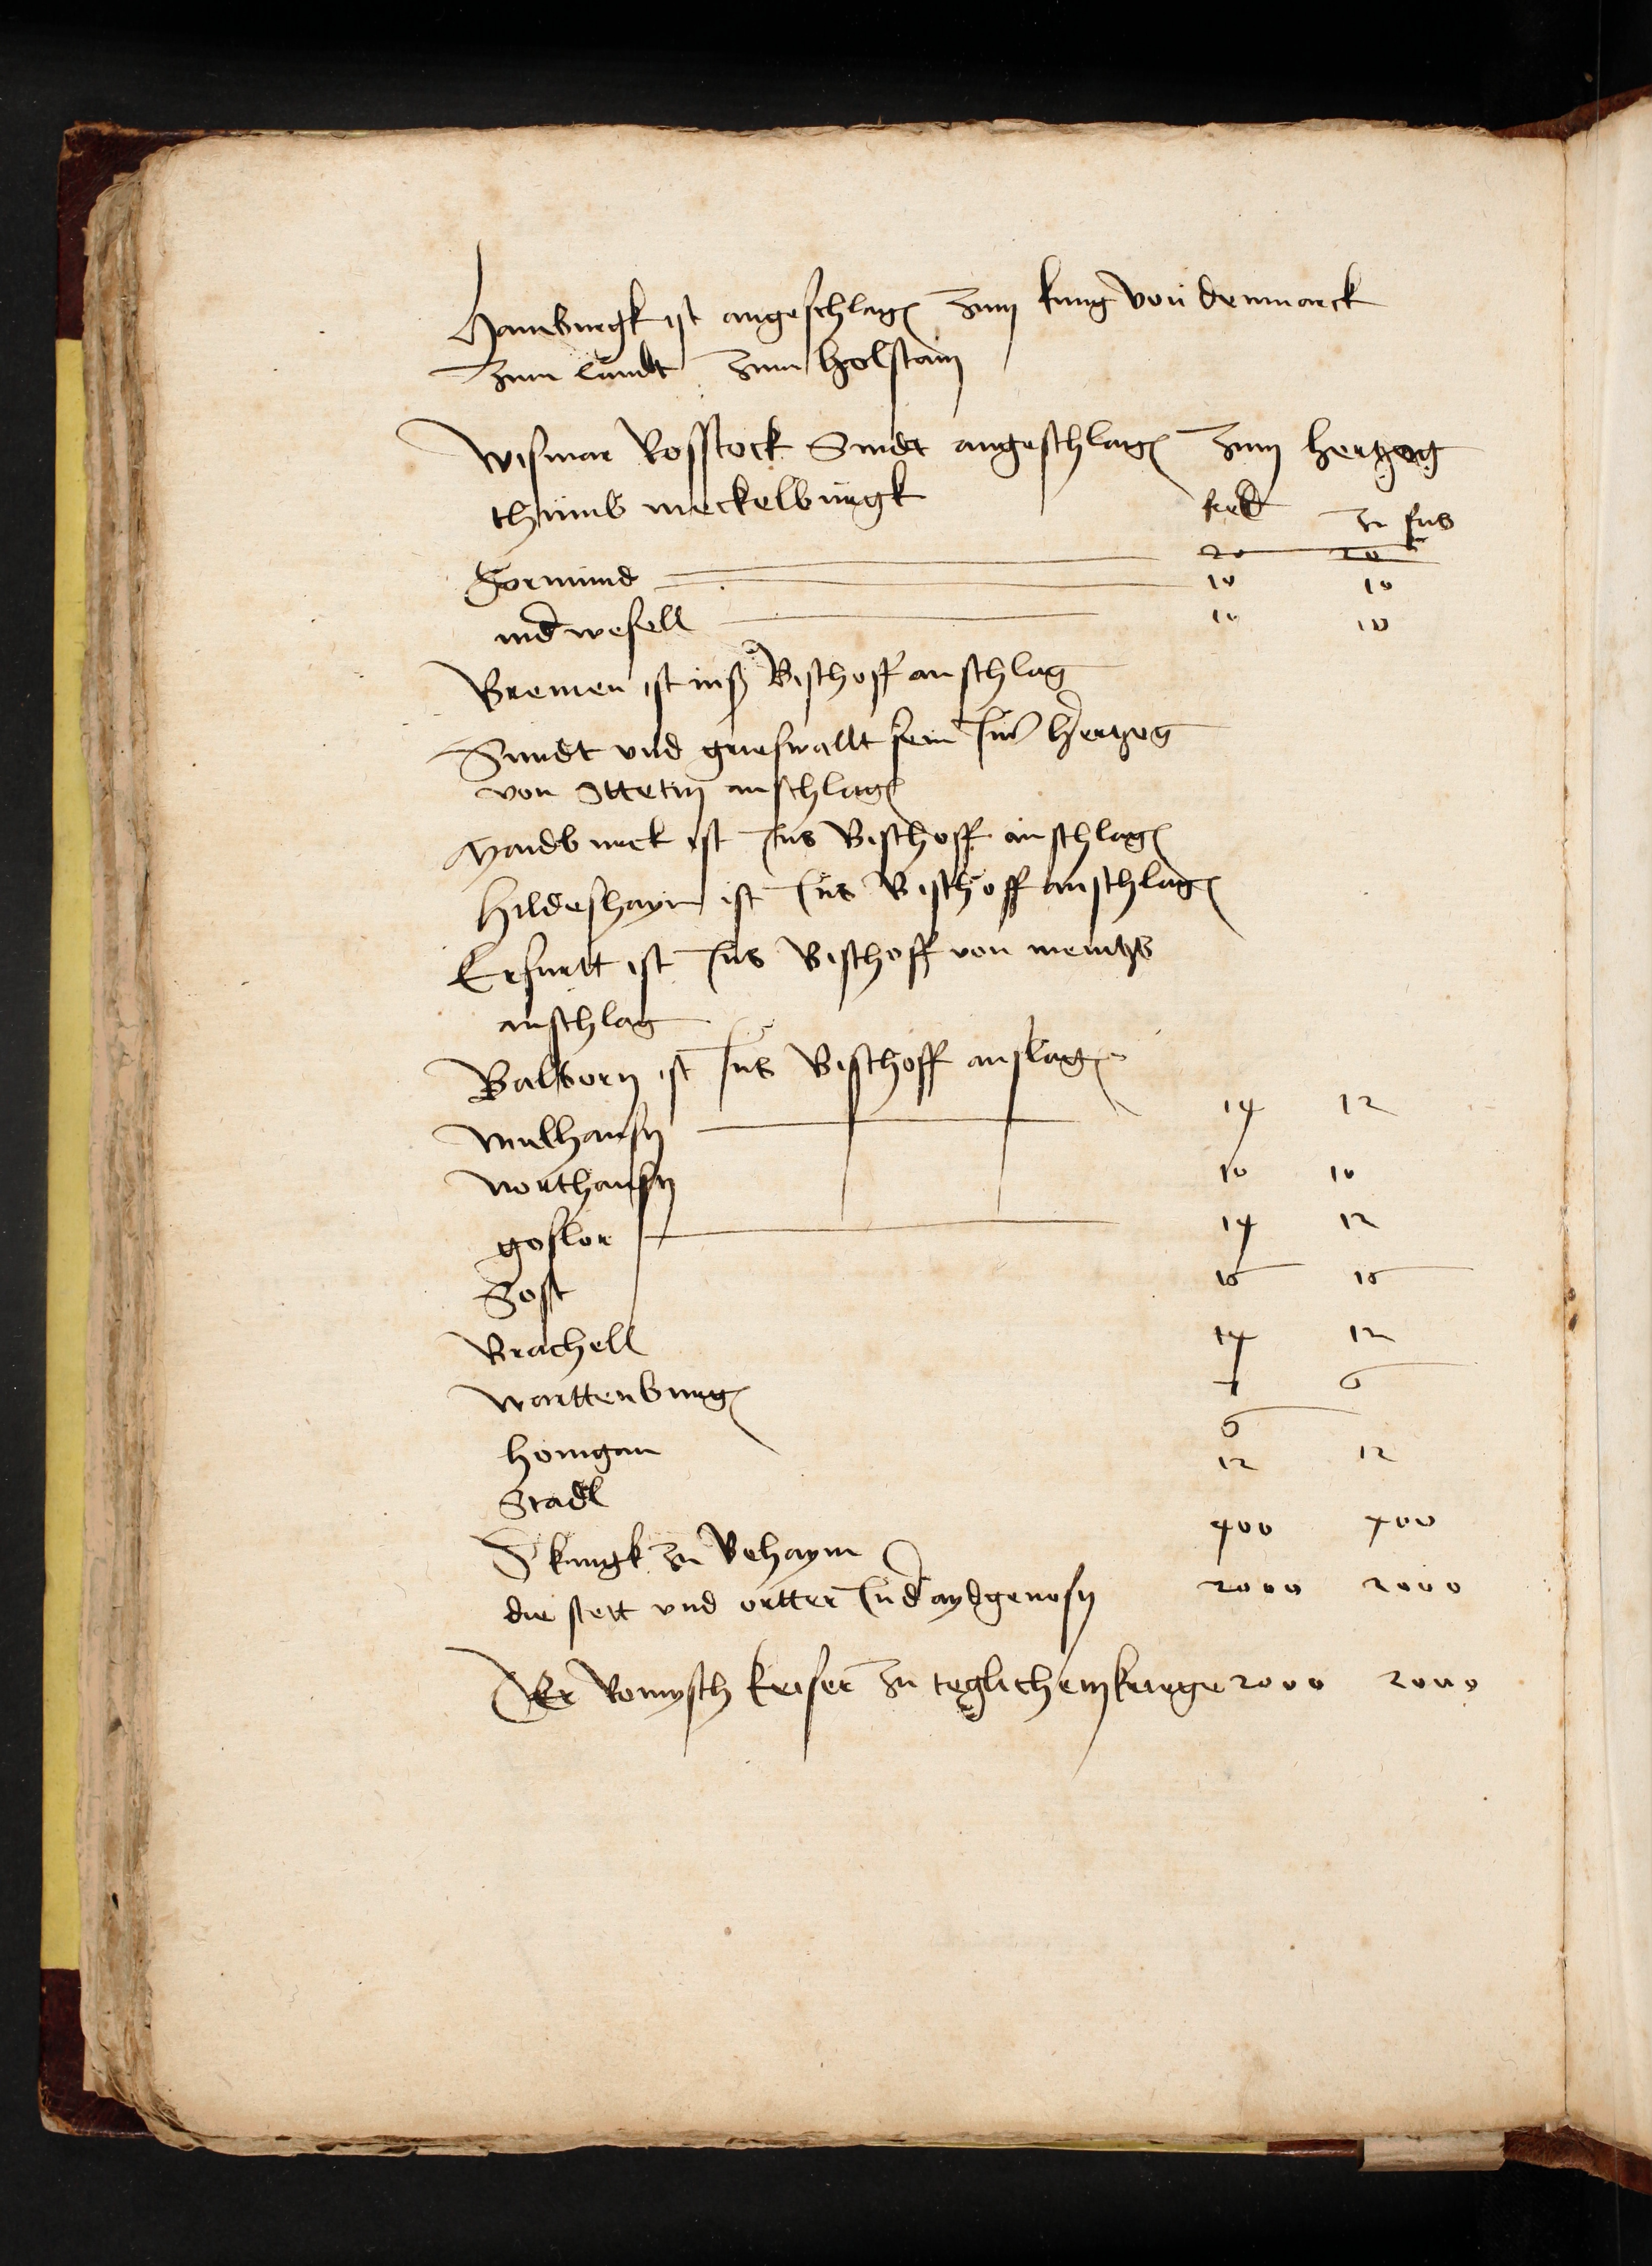 Hamburgk ist angeschlagen zum kung von denmarck
zum landt zum holstain
Wismar Rosstock Sindt angeschlagen zum hertzog
thumb meckelburgk
pferd zu fus
20 20
Dormund 10 10
nid wesell 10 10
Bremen ist inß Bischoff anschlag
Sundt und griefswallt sein Ins hertzog
von Stettin anschlag
Maidburck ist Ins Bischoff anschlag
Hildeshaym ist Ins Bischoff anschlag
Erfurtt ist Ins Bischoff von mentzs
anschlag
Balborn ist Ins Bischoff anslag
Mulhausn 14 12
Northausn 10 10
goslor 14 12
Sost 15 15
Brachell 14 12
Warttenburg 4 6
homgau 6
Stadl 12 12
D kungk zu Behaym 400 400
die stett und ortter Ind aydgenosn 2000 2000
Der Romysch keiser zu teglichem kriege 2000 2000